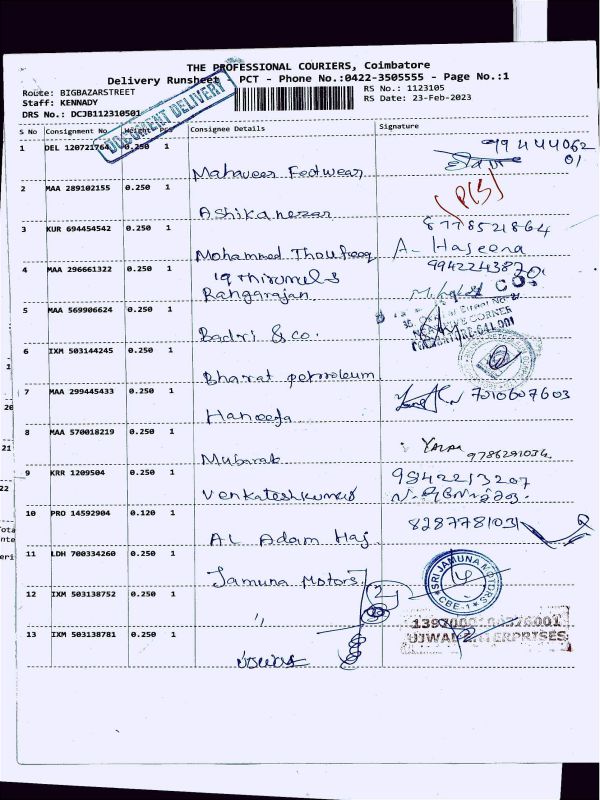 THE PROFESSIONAL COURIERS, Coimbatore
Delivery Runsheet - PCT - Phone No.:0422-3505555 - Page No.:1
Route: BIGBAZARSTREET
RS No.: 1123105
Staff: KENNADY
RS Date: 23-Feb-2023
DRS No.: DCJB112310501
DOCUMENT DELIVERY
S No Consignment No. Weight PCS Consignee Details Signature
1 DEL 120721764 0.250 1
Mahaveer Footwear
2 MAA 289102155 0.250 1
3 KUR 694454542 0.250 1
8778521864
Mohammed Thoufeeq A- Haseena
4 MAA 296661322 0.250 1
9942243870
Rangarajan
5 MAA 569906624 0.250 1
CORNER
Badri & co.
6 IXM 503144245 0.250 1
Bharat petroleum
7 MAA 299445433 0.250 1
7010607603
Haneefa
8 MAA 570018219 0.250 1
Mubarak
9786291034
9 KRR 1209504 0.250 1
9842213207
Venkateshkumar
10 PRO 14592904 0.120 1
8287781031
AL Adam Haj
11 LDH 700334260 0.250 1
Jamuna Motors
SRI JAMUNA MOTORS
CBE-1
12 IXM 503138752 0.250 1
"
13 IXM 503138781 0.250 1
UJWAL ENTERPRISES